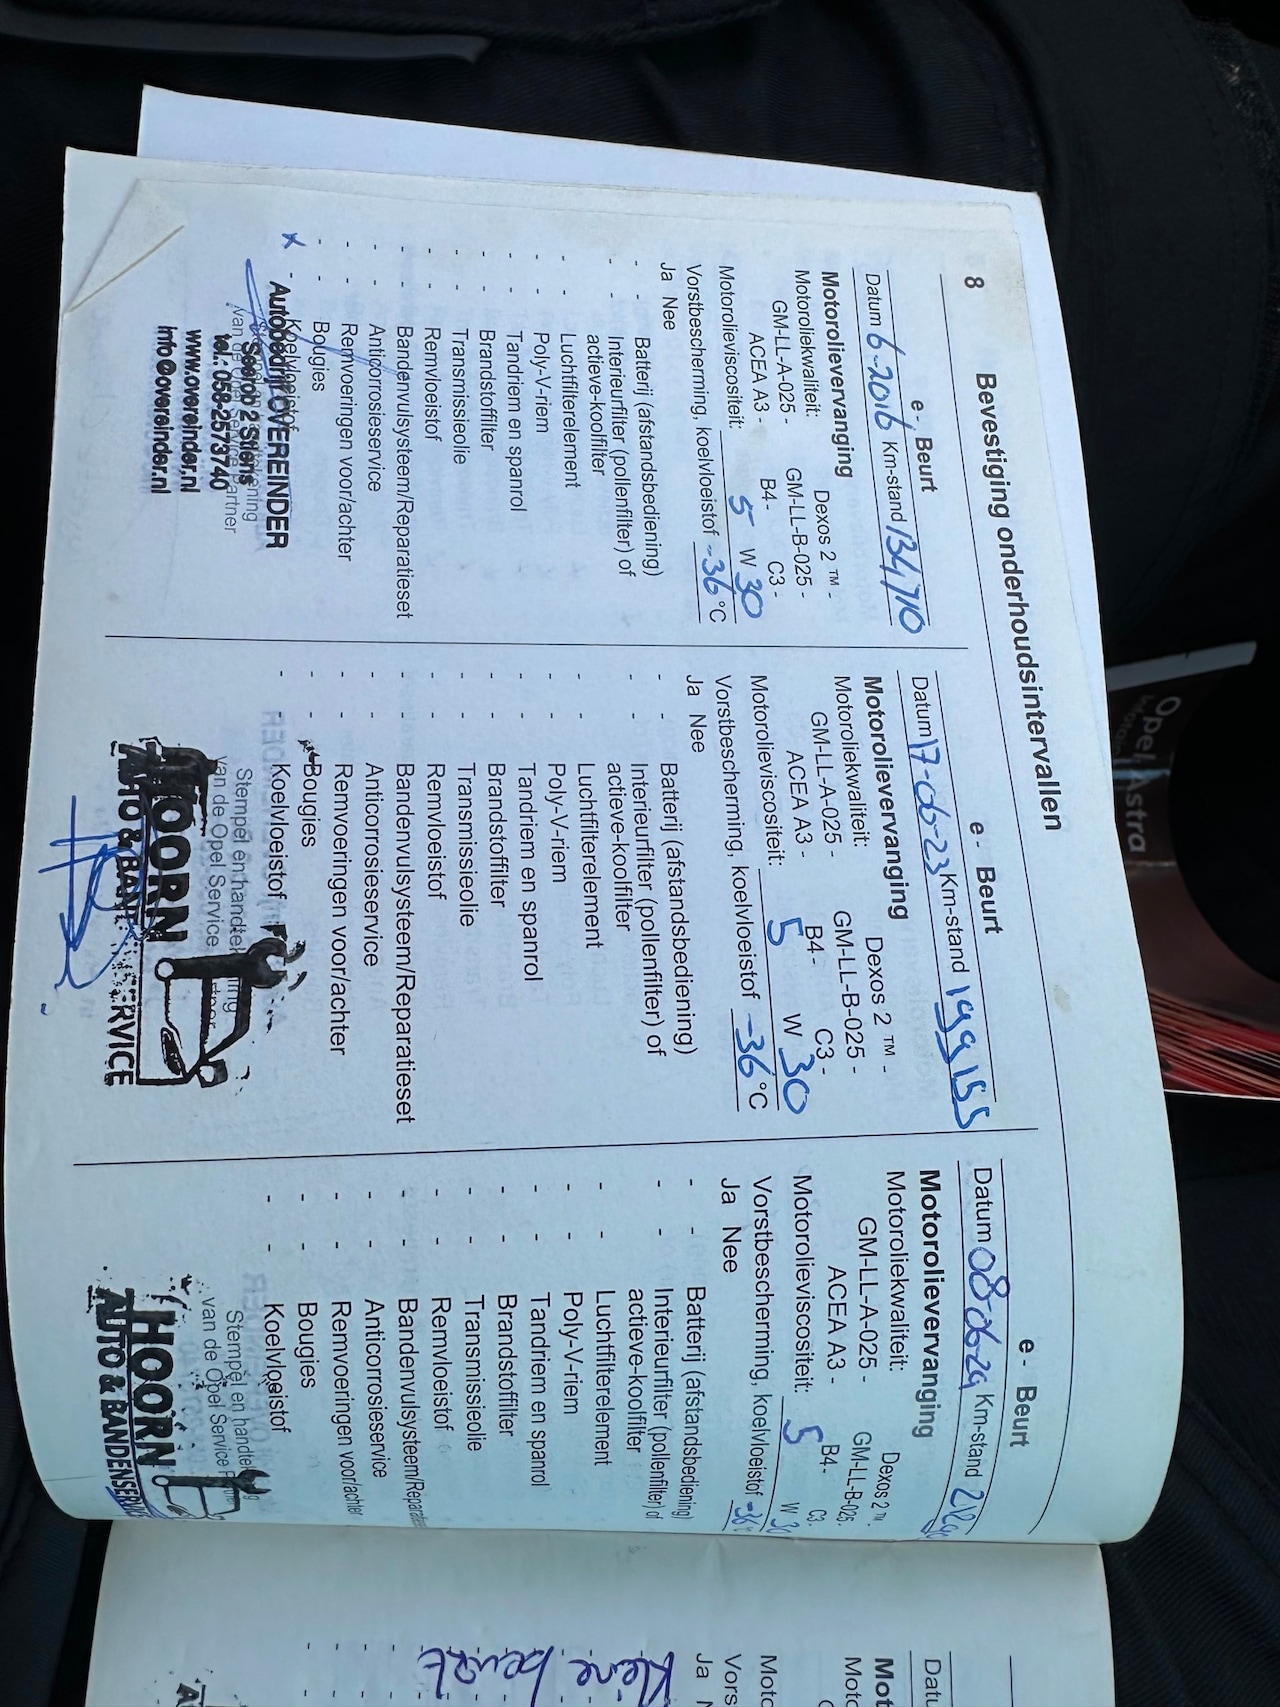 8 Bevestiging onderhoudsintervallen
e - Beurt
Datum 6-2016 Km-stand 134710
Motorolievervanging
Motoroliekwaliteit: Dexos 2 ™ -
GM-LL-A-025 - GM-LL-B-025 -
ACEA A3 - B4 - C3 -
Motorolieviscositeit: 5 W 30
Vorstbescherming, koelvloeistof -36 °C
Ja Nee
- - Batterij (afstandsbediening)
- - Interieurfilter (pollenfilter) of
actieve-koolfilter
- - Luchtfilterelement
- - Poly-V-riem
- - Tandriem en spanrol
- - Brandstoffilter
- - Transmissieolie
- - Remvloeistof
- - Bandenvulsysteem/Reparatieset
- - Anticorrosieservice
- - Remvoeringen voor/achter
- - Bougies
x - Koelvloeistof
Autobedrijf OVEREINDER
2 Stiens
tel.: 058-2573740
www.overeinder.nl
info@overeinder.nl
e - Beurt
Datum 17-06-23 Km-stand 199155
Motorolievervanging
Motoroliekwaliteit: Dexos 2 ™ -
GM-LL-A-025 - GM-LL-B-025 -
ACEA A3 - B4 - C3 -
Motorolieviscositeit: 5 W 30
Vorstbescherming, koelvloeistof -36 °C
Ja Nee
- - Batterij (afstandsbediening)
- - Interieurfilter (pollenfilter) of
actieve-koolfilter
- - Luchtfilterelement
- - Poly-V-riem
- - Tandriem en spanrol
- - Brandstoffilter
- - Transmissieolie
- - Remvloeistof
- - Bandenvulsysteem/Reparatieset
- - Anticorrosieservice
- - Remvoeringen voor/achter
- - Bougies
- - Koelvloeistof
Stempel en handtekening
van de Opel Service Partner
HOORN
AUTO & BANDENSERVICE
e - Beurt
Datum 08-06-24 Km-stand
Motorolievervanging
Motoroliekwaliteit: Dexos 2 ™ -
GM-LL-A-025 - GM-LL-B-025 -
ACEA A3 - B4 - C3 -
Motorolieviscositeit: 5 W 30
Vorstbescherming, koelvloeistof -36 °
Ja Nee
- - Batterij (afstandsbediening)
- - Interieurfilter (pollenfilter) of
actieve-koolfilter
- - Luchtfilterelement
- - Poly-V-riem
- - Tandriem en spanrol
- - Brandstoffilter
- - Transmissieolie
- - Remvloeistof
- - Bandenvulsysteem/Reparatieset
- - Anticorrosieservice
- - Remvoeringen voor/achter
- - Bougies
- - Koelvloeistof
Stempel en handtekening
van de Opel Service
HOORN
AUTO & BANDENSERVICE
Datu
Mot
Moto
Moto
Vors
Ja N
Kleine beurt
Opel Astra